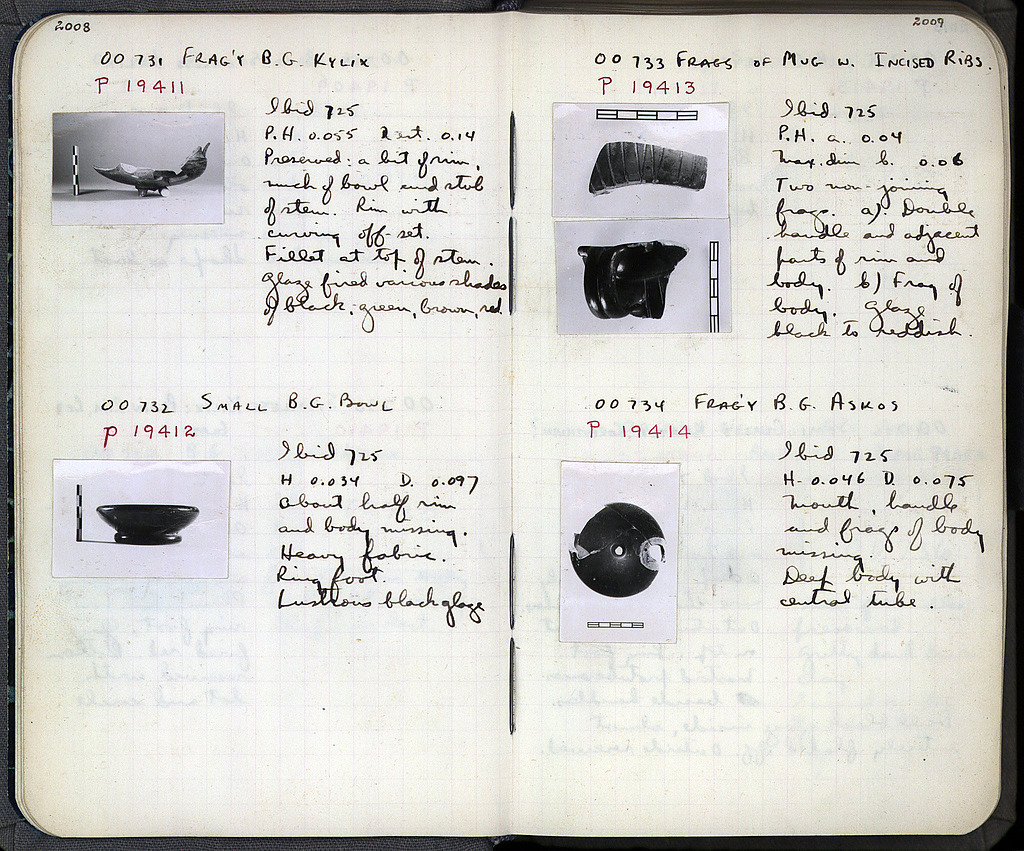 2008
OO 731 FRAG'Y B.G. KYLIX
P 19411
Ibid 725
P.H. 0.055 Rest. 0.14
Preserved: a bit of rim,
much of bowl and stub
of stem. Rim with
curving off set.
Fillet at top of stem.
Glaze fired various shades
of black, green, brown, red.
OO 732 SMALL B.G. BOWL
P 19412
Ibid 725
H 0.034 D. 0.097
About half rim
and body missing.
Heavy fabric.
Ring foot.
Lustrous black glaze
2009
OO 733 FRAGS OF MUG W. INCISED RIBS.
P 19413
Ibid 725
P.H. a. 0.04
Max. dim b. 0.06
Two non-joining
frags. a). Double
handle and adjacent
parts of rim and
body. b) Frag of
body. Glaze
black to reddish.
OO 734 FRAG'Y B.G. ASKOS
P 19414
Ibid 725
H. 0.046 D. 0.075
Mouth, handle
and frags of body
missing.
Deep body with
central tube.